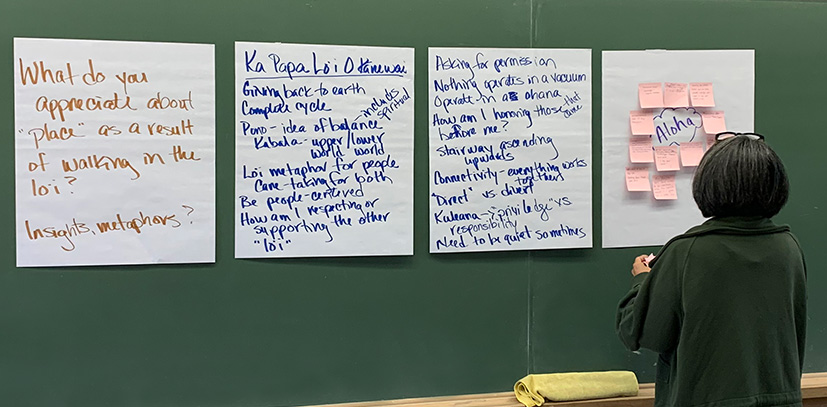 What do you
appreciate about
"place" as a result
of walking in the
lo'i?
Insights, metaphors?
Ka Papa Lo'i O Kanewai
Giving back to earth
Complete cycle
Pono - idea of balance - includes spiritual
Kabala - upper/lower
world world
Lo'i metaphor for people
Care-taking for both
Be people-centered
How am I respecting or
supporting the other
"lo'i"
Asking for permission
Nothing operates in a vacuum
Operate in as ohana
How am I honoring those that came
before me?
Stairway ascending
upwards
Connectivity - everything works
together
"Direct" vs divert
Kuleana - "priviledge" vs
responsibility
Need to be quiet sometimes
Aloha